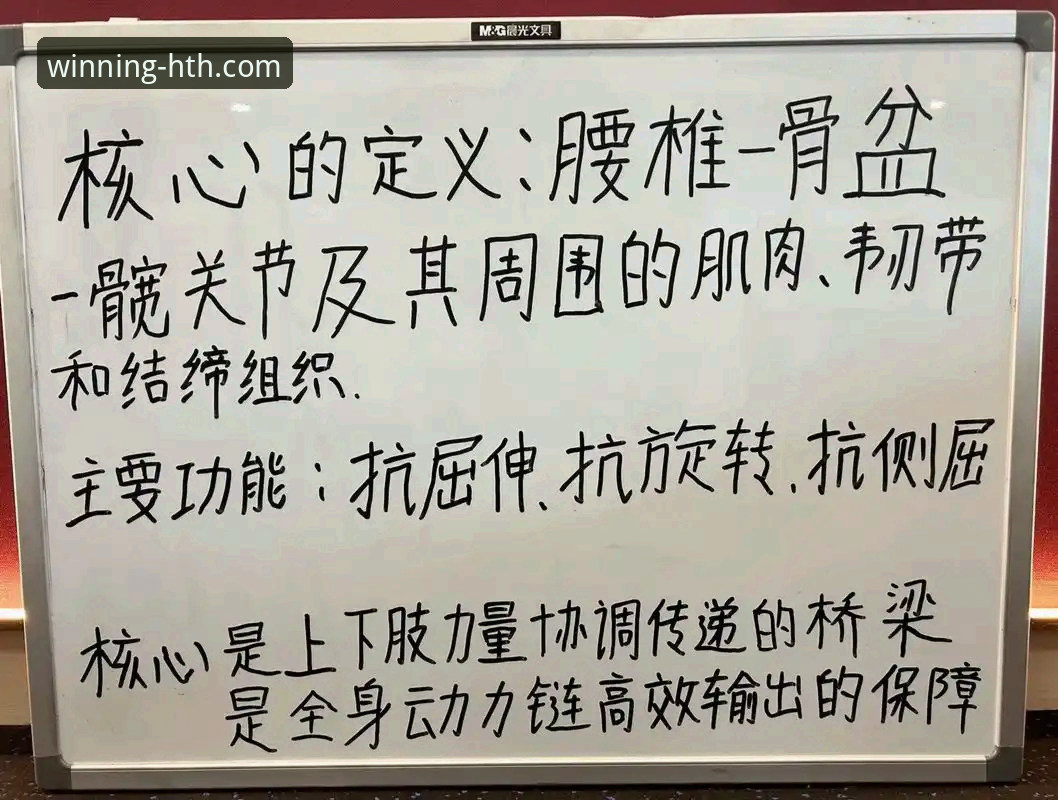 M&G晨光文具
winning-hth.com
核心的定义：腰椎－骨盆
－髋关节及其周围的肌肉、韧带
和结缔组织.
主要功能：抗屈伸、抗旋转、抗侧屈
核心是上下肢力量协调传递的桥梁
是全身动力链高效输出的保障